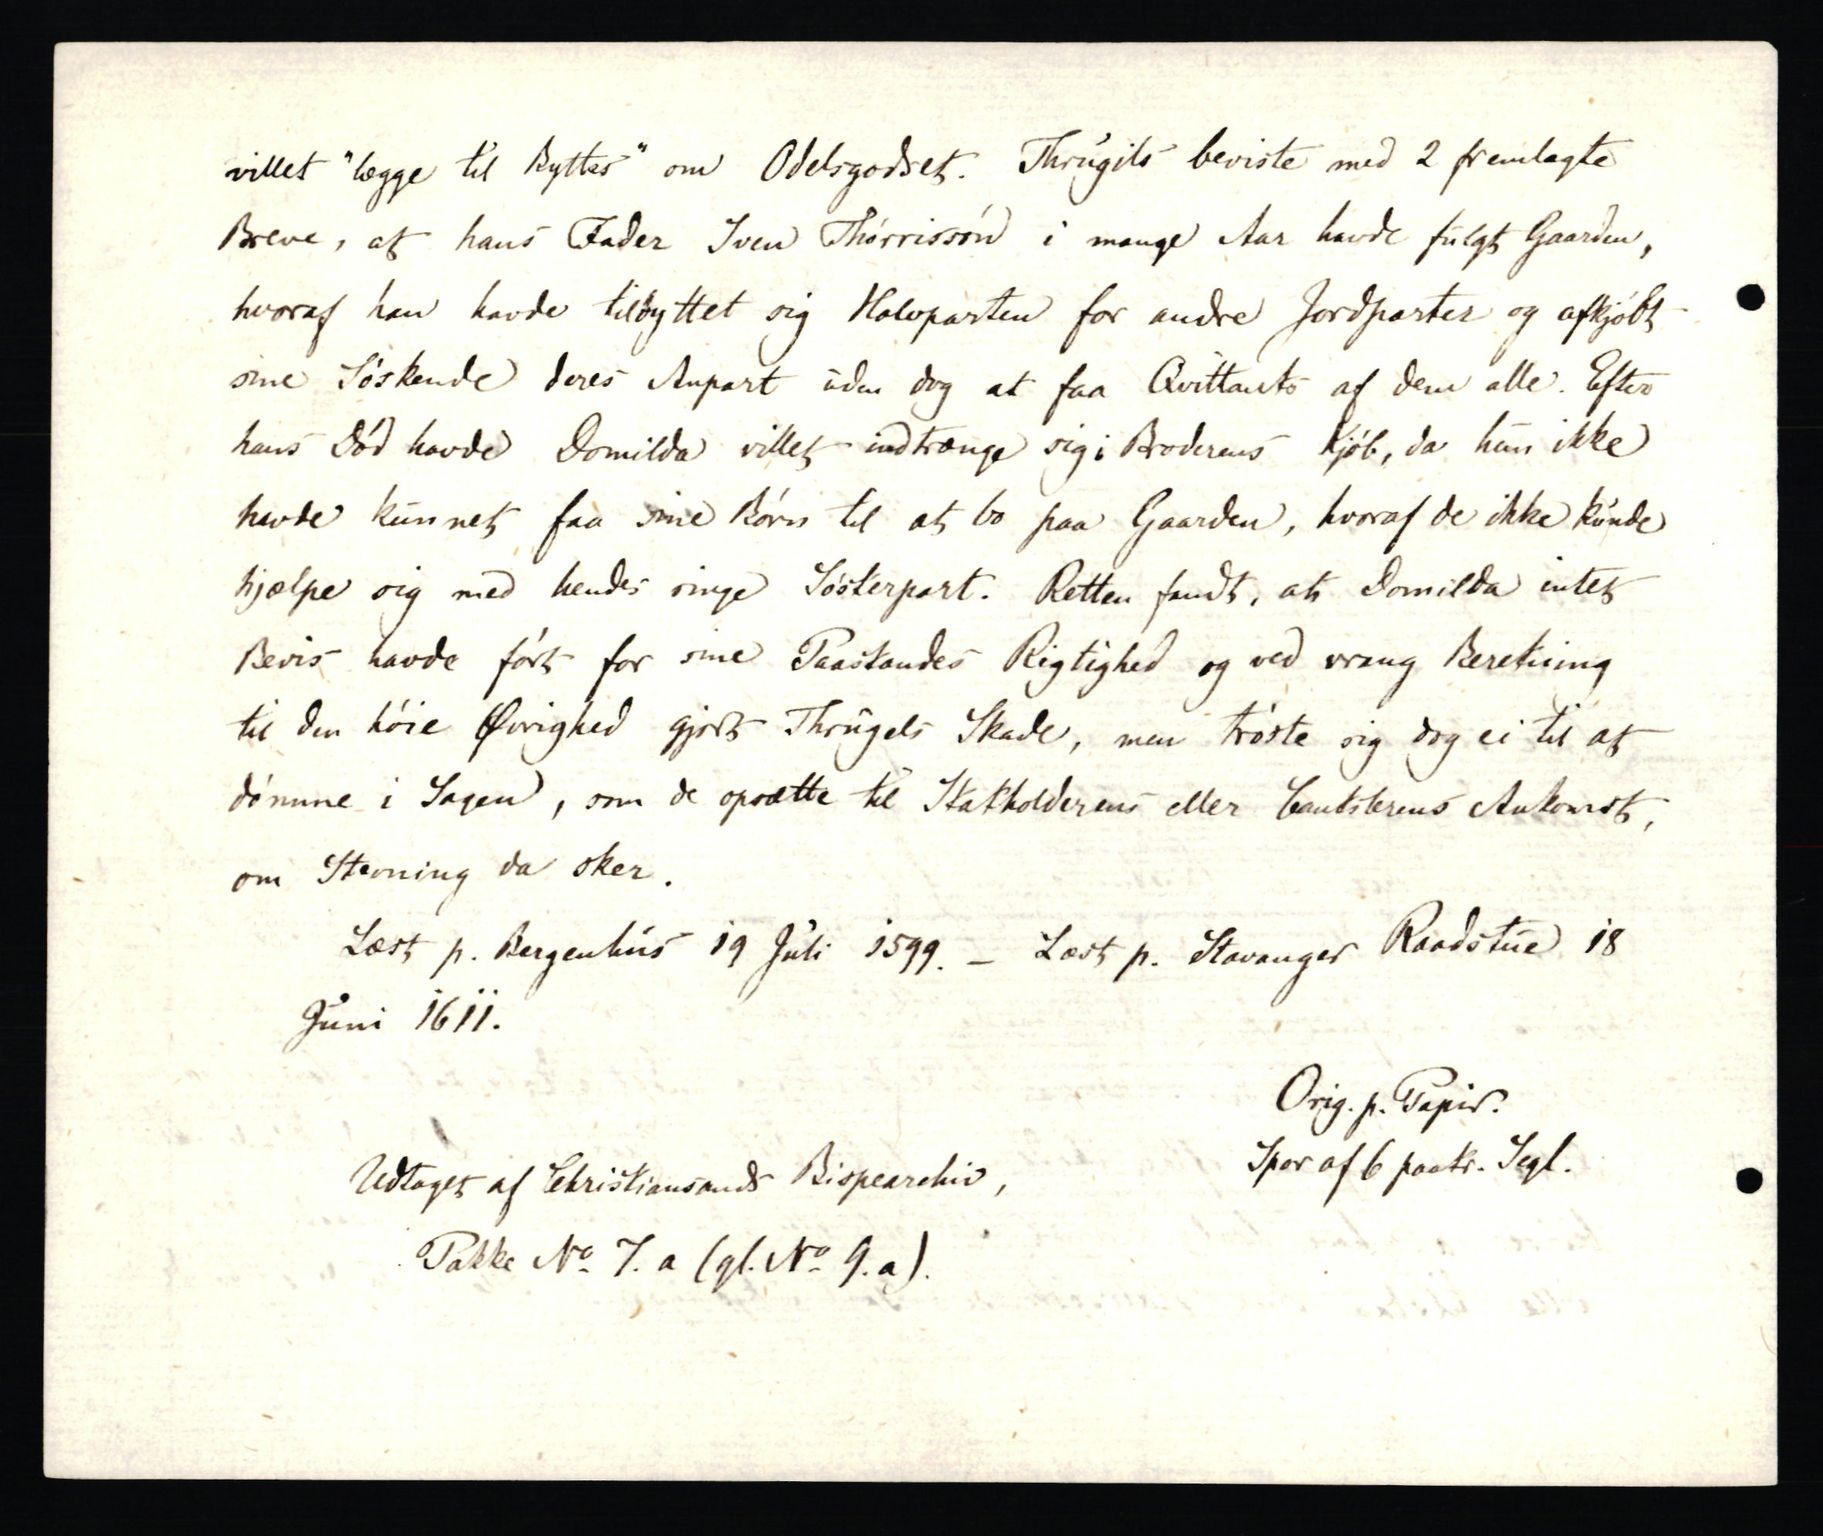 villet "lægge til Byttes" om Odelsgodset. Thrugils beviste med 2 fremlagte
Breve, at hans Fader Sven Thórrissón i mange Aar havde fulgt Gaarden,
hvoraf han havde tilbyttet sig Halvparten for andre Jordparter og afkjóbt
sine Sóskende deres Anpart uden dog at faa Qvittants af dem alle. Efter
hans Dód havde Domilda villet indtrænge sig i Broderens Kjób, da hun ikke
havde kunnet faa sine Bórn til at bo paa Gaarden, hvoraf de ikke kunde
hjælpe sig med hendes ringe Sósterpart. Retten fandt, at Domilda intet
Bevis havde fórt for sine Paastandes Rigtighed og ved vrang Beretning
til den hóie Øvrighed gjort Thrugels Skade, men tróste sig dog ei til at
dómme i Sagen, som de opsætte til Statholderens eller Cantslerens Ankomst,
om Stevning da sker.
Læst p. Bergenhus 19 Juli 1599. – Læst p. Stavanger Raadstue 18
Juni 1611.
Orig. p. Papir.
Spor af 6 paatr. Segl.
Udtaget af Christiansands Bispearchiv,
Pakke No. 7. a (gl. No. 9. a).